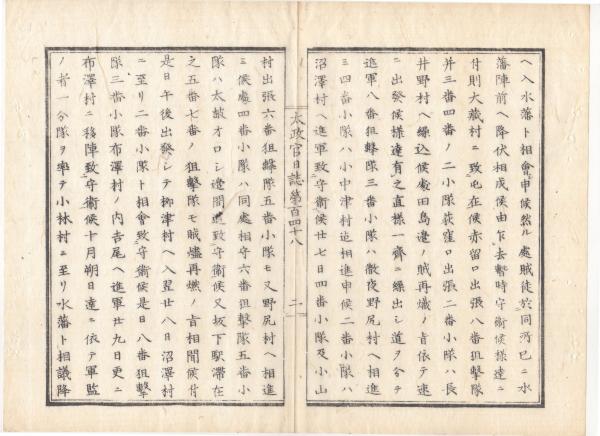 ヘ入水藩ト相會申候然ル處賊徒於同所已ニ水
藩陣前ヘ降伏相成候由乍去暫時守衛候樣達ニ
付則大藏村ニ致屯在候赤留口出張八番狙擊隊
并三番四番ノ二小隊荻窪口出張二番小隊ハ長
井野村ヘ繰込候處田島邊ノ賊再熾ノ旨依テ速
ニ出發候樣達有之直樣一齊ニ繰出シ道ヲ分テ
進軍八番狙擊隊三番小隊ハ徹夜野尻村ヘ相進
三四番小隊ハ小中津村迠相進申候二番小隊ハ
沼澤村ヘ進軍致守衛候廿七日四番小隊及小山
太政官日誌第百四十八
二
村出張六番狙擊隊五番小隊モ又野尻村ヘ相進
ミ候處四番小隊ハ同處相守六番狙擊隊五番小
隊ハ太鼓オロシ邊間道致守衛候又坂下驛滯在
之五番七番ノ狙擊隊モ賊燼再燃ノ旨相聞候付
是日午後出發シテ柳津村ヘ入翌廿八日沼澤村
ニ至リ二番小隊ト相會致守衛候是日八番狙擊
隊三番小隊布澤村ノ内吉尾ヘ進軍廿九日更ニ
布澤村ニ移陣致守衛候十月朔日達ニ依テ軍監
ノ者一分隊ヲ率テ小林村ニ至リ水藩ト相議降